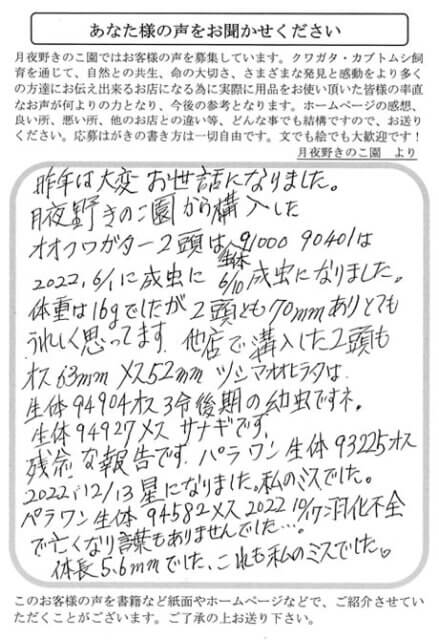 あなた様の声をお聞かせください
月夜野きのこ園ではお客様の声を募集しています。クワガタ・カブトムシ飼
育を通じて、自然との共生、命の大切さ、さまざまな発見と感動をより多く
の方達にお伝え出来るお店になる為に実際に用品をお使い頂いた皆様の率直
なお声が何よりの力となり、今後の参考となります。ホームページの感想、
良い所、悪い所、他のお店との違い等、どんな事でも結構ですので、お送り
ください。応募はがきの書き方は一切自由です。文でも絵でも大歓迎です！
月夜野きのこ園 より
昨年は大変お世話になりました。
月夜野きのこ園から購入した
オオクワガター2頭は生体91000 90401は
2022,6/1に成虫に 6/10成虫になりました。
体重は16gでしたが2頭とも70mmありとても
うれしく思ってます。他店で購入した2頭も
オス63mmメス52mm ツシマオオヒラタは
生体94904オス3令後期の幼虫ですネ。
生体94927メス サナギです。
残念な報告です。パラワン生体93225オス
2022.12/13星になりました。私のミスでした。
パラワン生体94582メス2022 10/17羽化不全
で亡くなり言葉もありませんでした…。
体長5.6mmでした、これも私のミスでした。
このお客様の声を書籍など紙面やホームページなどで、ご紹介させていた
だくことがございます。ご了承の上お送り下さい。